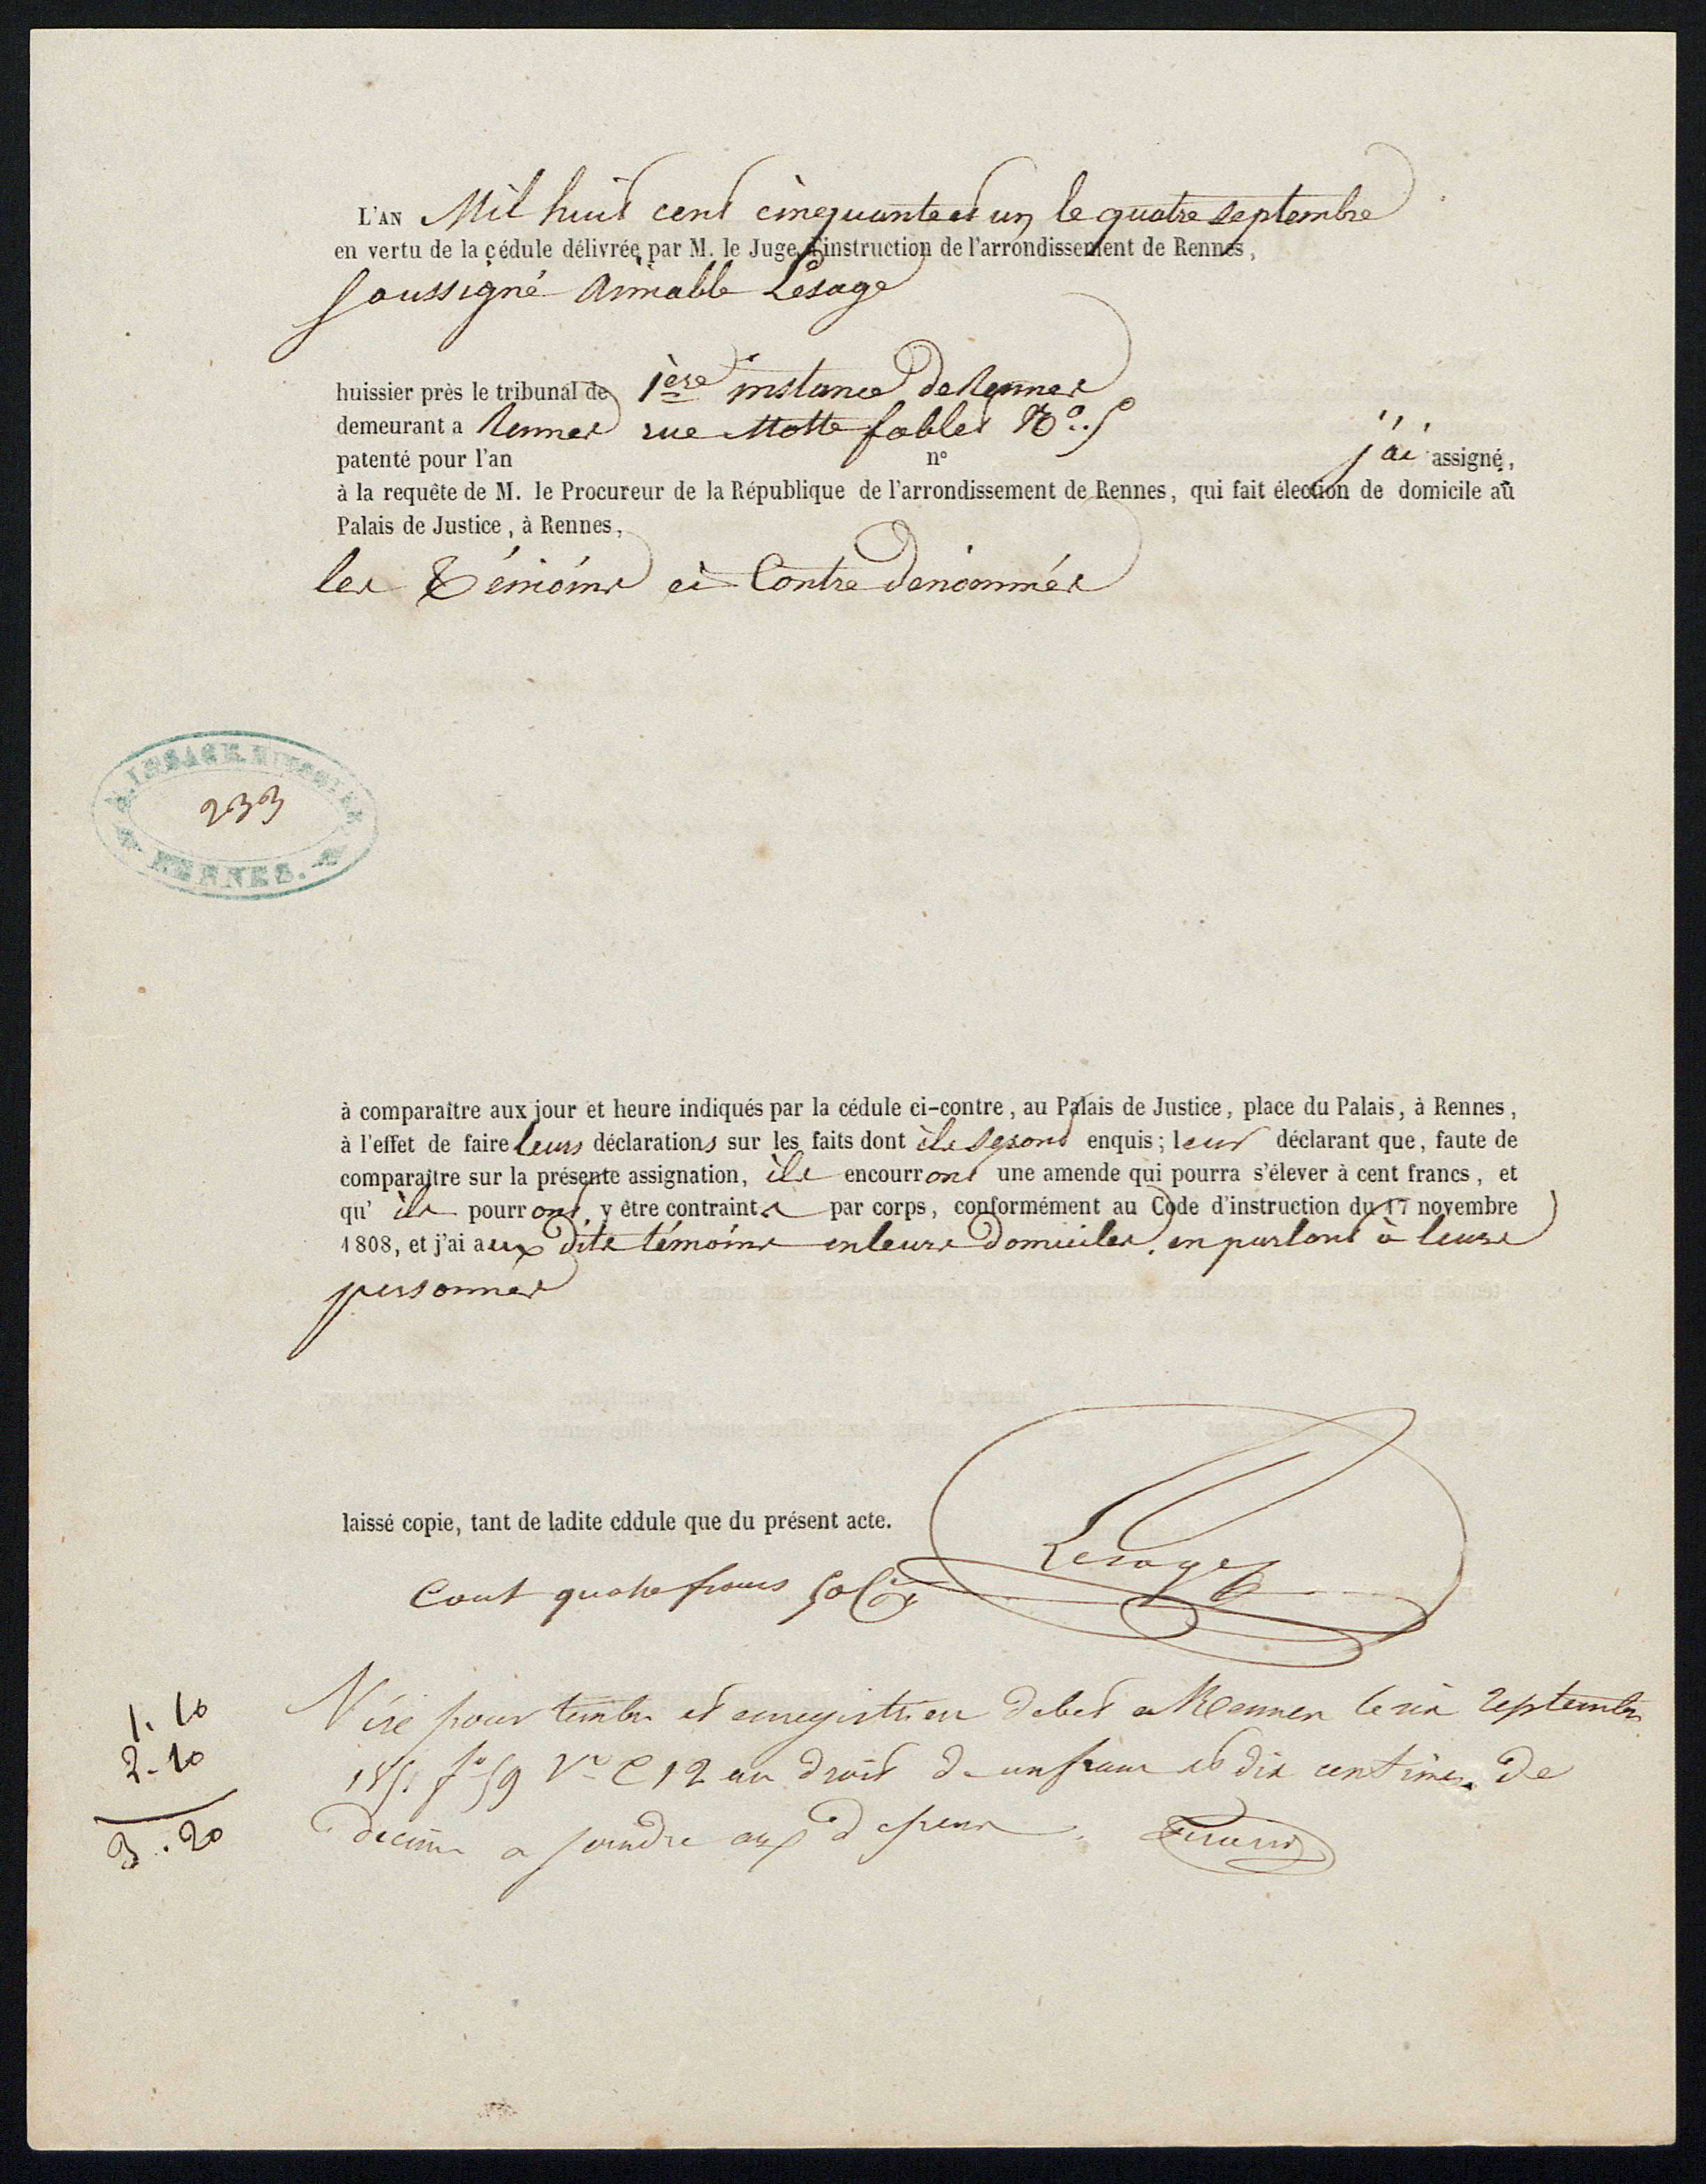 L'AN Mil huit cent cinquante et un le quatre septembre
en vertu de la cédule délivrée par M. le Juge d'instruction de l'arrondissement de Rennes,
Soussigné Aimable Lesage
huissier près le tribunal de 1ère instance de Rennes
demeurant a Rennes rue Motte fablet No. 5
patenté pour l'an n° j'ai assigné,
à la requête de M. le Procureur de la République de l'arrondissement de Rennes, qui fait élection de domicile au
Palais de Justice, à Rennes,
les témoins ci Contre denommés
A. LESAGE. HUISSIER
233
RENNES.
à comparaître aux jour et heure indiqués par la cédule ci-contre, au Palais de Justice, place du Palais, à Rennes,
à l'effet de faire leurs déclarations sur les faits dont ils seront enquis; leur déclarant que, faute de
comparaître sur la présente assignation, ils encourront une amende qui pourra s'élever à cent francs, et
qu' ils pourront y être contraints par corps, conformément au Code d'instruction du 17 novembre
1808, et j'ai aux dits témoins en leurs domiciles, en parlant à leurs
personnes
laissé copie, tant de ladite cddule que du présent acte.
Lesage
Cout quatre francs 50 Cs
Visé pour timbre et enregistré en debet a Rennes le six septembre
1851 fo 59 Vo C 12 au droit de un franc et dix centimes de
decime a joindre aux depens.
1. 10
2. 10
3. 20